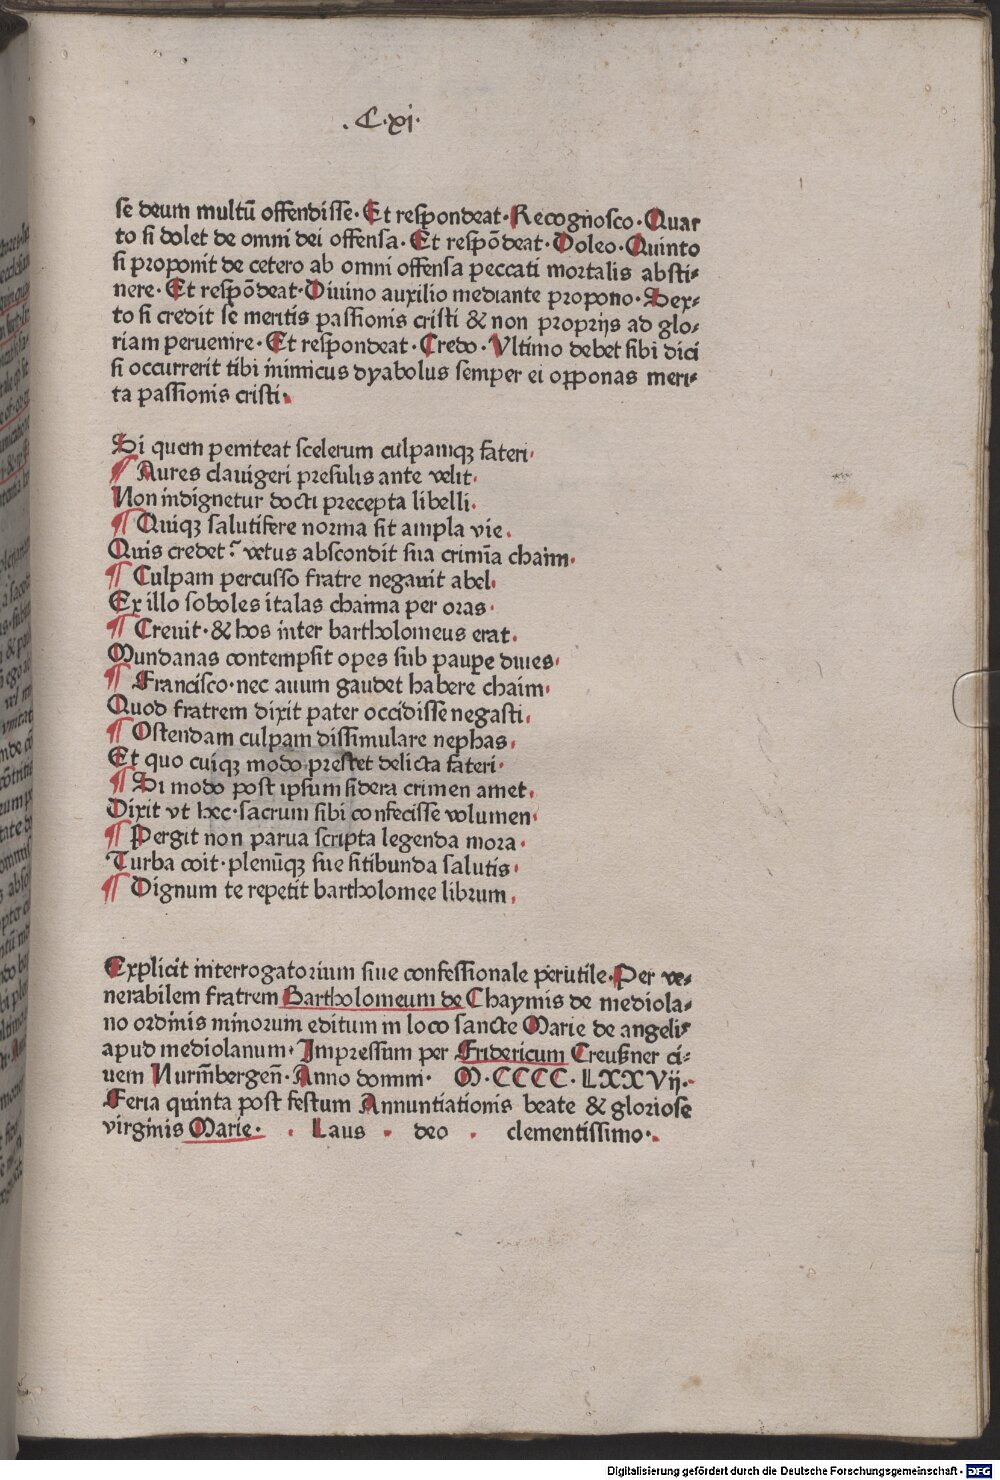 .C.xi.
se deum multū offendisse. Et respondeat. Recognosco. Quar
to si dolet de omni dei offensa. Et respōdeat. Doleo. Quinto
si proponit de cetero ab omni offensa peccati mortalis absti-
nere. Et respōdeat. Diuino auxilio mediante propono. Sex-
to si credit se meritis passionis cristi & non proprijs ad glo-
riam peruenire. Et respondeat. Credo. Vltimo debet sibi dici
si occurrerit tibi inimicus dyabolus semper ei opponas meri-
ta passionis cristi.
Si quem peniteat scelerum culpamqꝫ fateri.
¶ Aures clauigeri presulis ante velit.
Non indignetur docti precepta libelli.
¶ Quiqꝫ salutifere norma sit ampla vie.
Quis credet? vetus abscondit sua crimīa chaim.
¶ Culpam percusso fratre negauit abel.
Ex illo soboles italas chaima per oras.
¶ Creuit. & hos inter bartholomeus erat.
Mundanas contempsit opes sub paupe diues.
¶ Francisco. nec auum gaudet habere chaim.
Quod fratrem dixit pater occidisse negasti.
¶ Ostendam culpam dissimulare nephas.
Et quo cuiqꝫ modo prestet delicta fateri.
¶ Si modo post ipsum sidera crimen amet.
Dixit vt hec. sacrum sibi confecisse volumen.
¶ Pergit non parua scripta legenda mora.
Turba coit. plenūqꝫ sue sitibunda salutis.
¶ Dignum te repetit bartholomee librum.
Explicit interrogatorium siue confessionale perutile. Per ve-
nerabilem fratrem Bartholomeum de Chaymis de mediola-
no ordinis minorum editum in loco sancte Marie de angelis
apud mediolanum. Impressum per Fridericum Creußner ci-
uem Nurm̄bergen̄. Anno domini. M.CCCC.LXXVij.
Feria quinta post festum Annuntiationis beate & gloriose
virginis Marie. . Laus . deo . clementissimo.
Digitalisierung gefördert durch die Deutsche Forschungsgemeinschaft - DFG